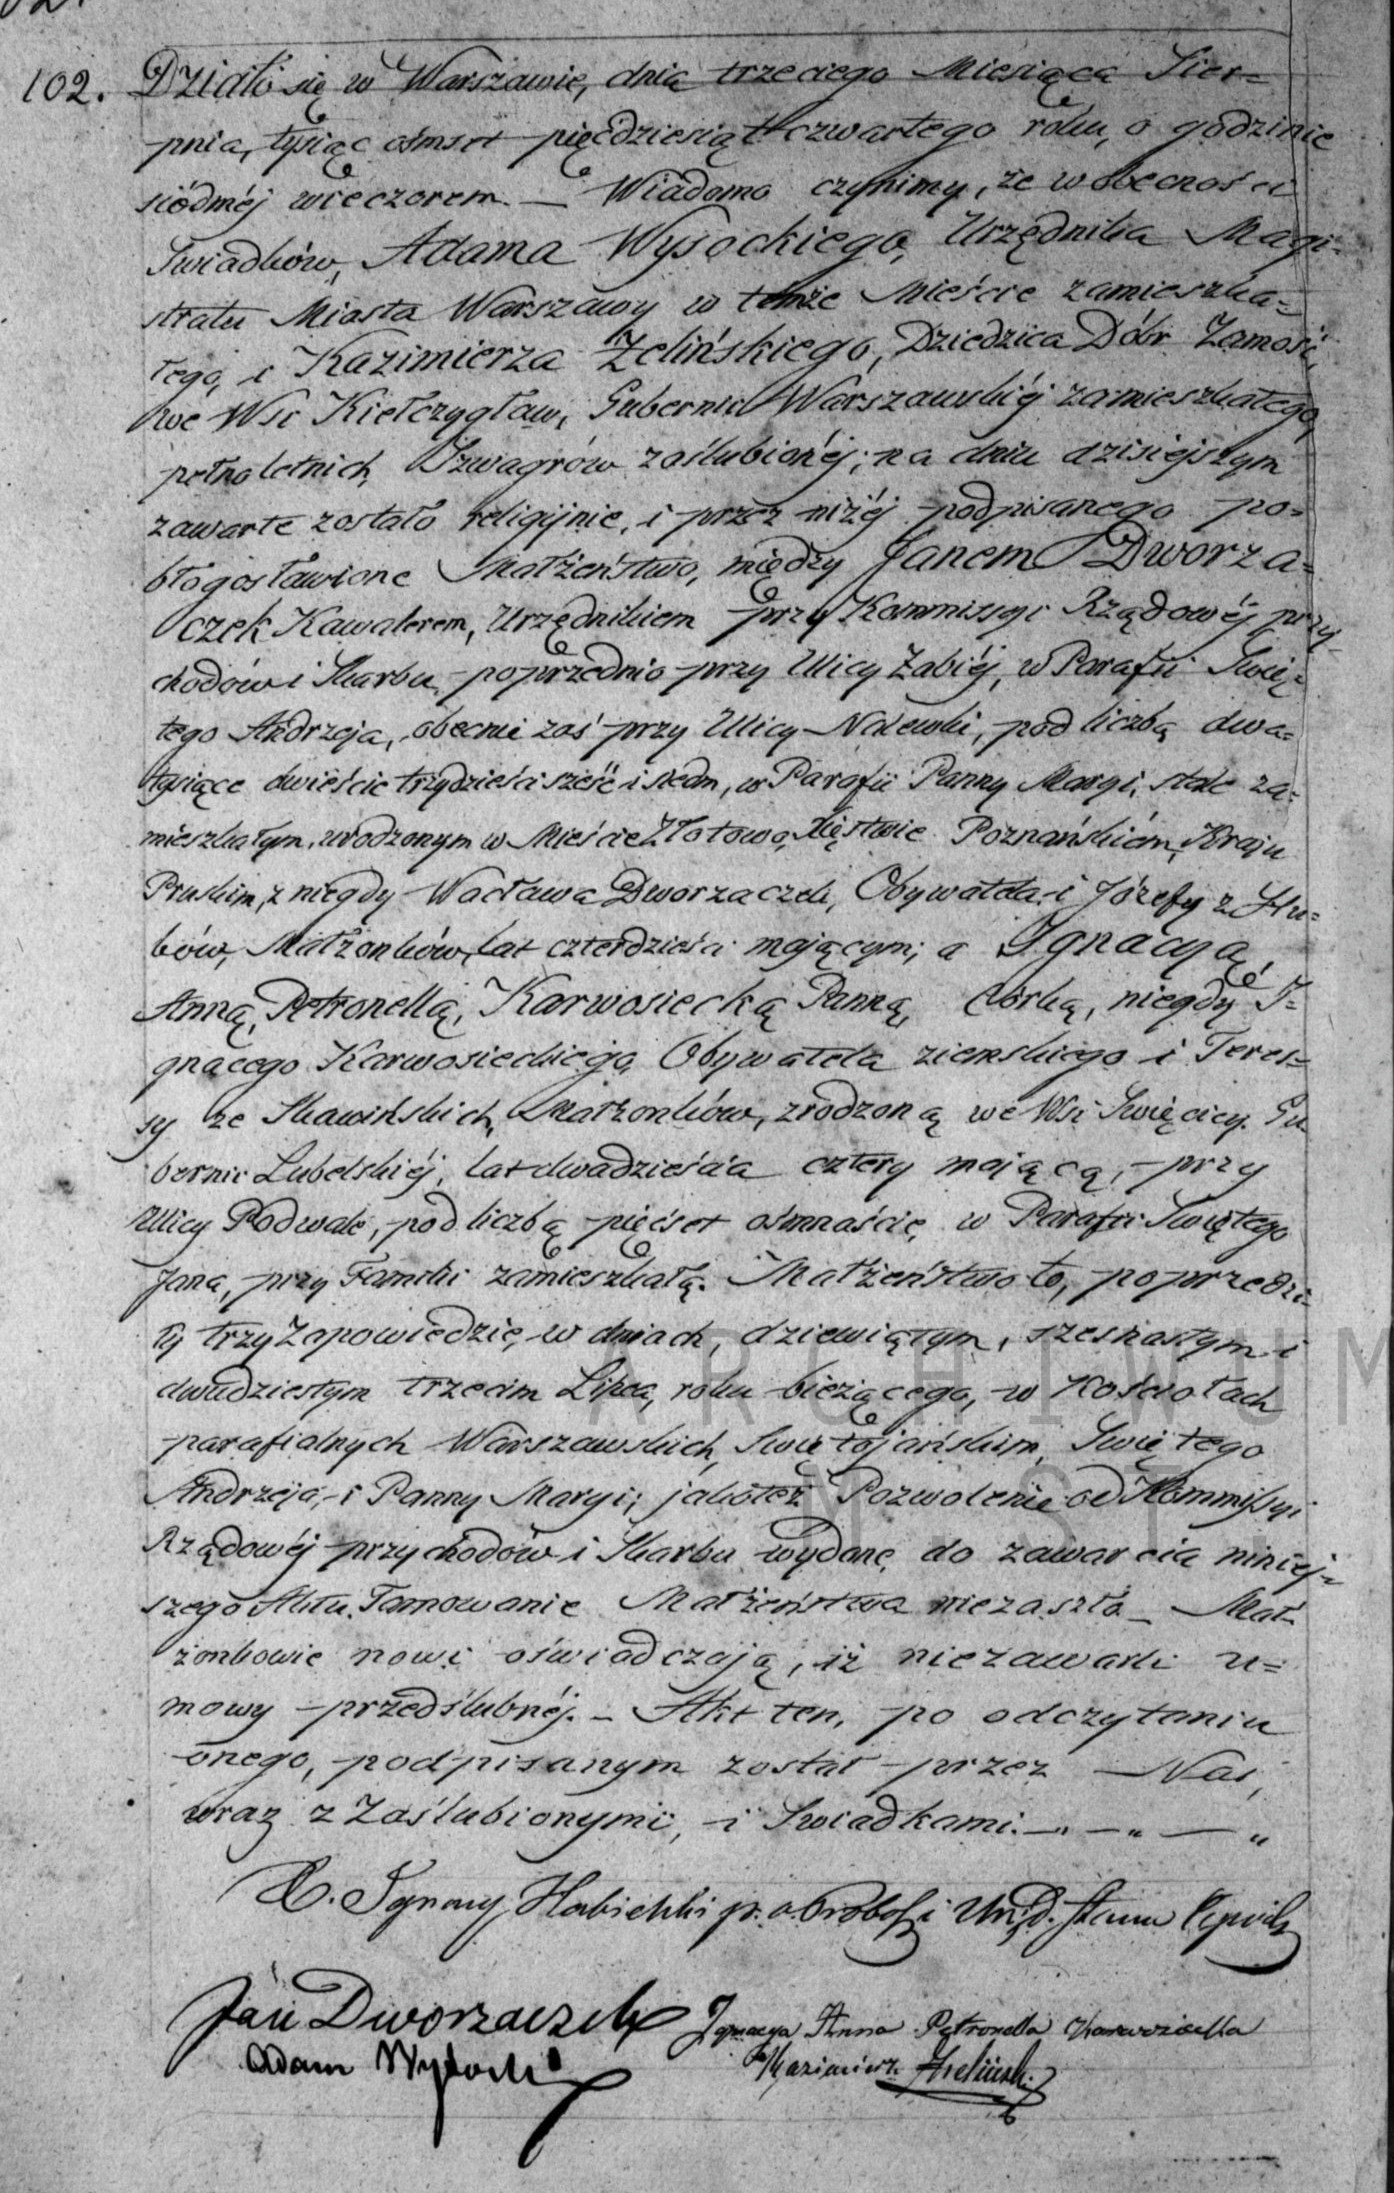 102. Działo się w Warszawie, dnia trzeciego Miesiąca Sier=
pnia, tysiąc ośmset pięćdziesiąt czwartego roku, o godzinie
siódmej wieczorem. — Wiadomo czynimy, że w obecności
Świadków, Adama Wysockiego, Urzędnika Magi=
stratu Miasta Warszawy w temże Mieście zamieszka=
łego, i Kazimierza Zelińskiego, Dziedzica Dóbr Zamość,
we Wsi Kiełczygław, Gubernii Warszawskiéj zamieszkałego,
pełnoletnich, Szwagrów zaślubionéj; na dniu dzisiejszym
zawarte zostało religijnie, i przez niżéj podpisanego po=
błogosławione Małżeństwo, między Janem Dworza=
czek Kawalerem, Urzędnikiem przy Kommissyi Rządowéj przy=
chodów i Skarbu, poprzednio przy Ulicy Żabiéj, w Parafii Swię=
tego Andrzeja, obecnie zaś przy Ulicy Nalewki, pod liczbą dwa=
tysiące dwieście trzydzieści sześć i siedm, w Parafii Panny Maryi, stale za=
mieszkałym, urodzonym w Mieście Złotowo, Xięstwie Poznańskiém, Kraju
Pruskim, z niegdy Wacława Dworzaczek, Obywatela i Józefy z
bów, Małżonków, lat czterdzieści mającym; a Ignacyą,
Anną, Petronellą, Karwosiecką Panną, córką, niegdy I=
gnacego Karwosieckiego, Obywatela ziemskiego i Teres=
sy ze Skawińskich, Małżonków, zrodzoną we Wsi Swięcicy Gu
bernii Lubelskiéj, lat dwadzieścia cztery mającą, przy
Ulicy Podwale, pod liczbą pięćset ośmnaście, w Parafii Swiętego
Jana, przy Familii zamieszkałą. Małżeństwo to, poprzedzi=
ły trzy Zapowiedzie, w dniach, dziewiątym, szesnastym i
dwudziestym trzecim Lipca, roku bieżącego, w Kościołach
parafialnych Warszawskich, Świętojańskim, Swiętego
Andrzeja, i Panny Maryi; jakoteż Pozwolenie od Kommissyi
Rządowéj przychodów i Skarbu wydane, do zawarcia niniej=
szego Aktu. Tamowanie Małżeństwa niezaszło. — Mał=
żonkowie nowi oświadczają, iż niezawarli u=
mowy przedślubnéj. — Akt ten, po odczytaniu
onego, podpisanym został przez Nas,
wraz z Zaślubionymi, i Swiadkami. — „ — „ — „
X. Ignacy p. o. Probosz i Urzęd. Stanu Cywil
Jan Dworzaczek Ignacya Anna Petronella Karwosiecka
Adam Wysocki Kazimierz Zieliński
ARCHIWUM
M. ST.